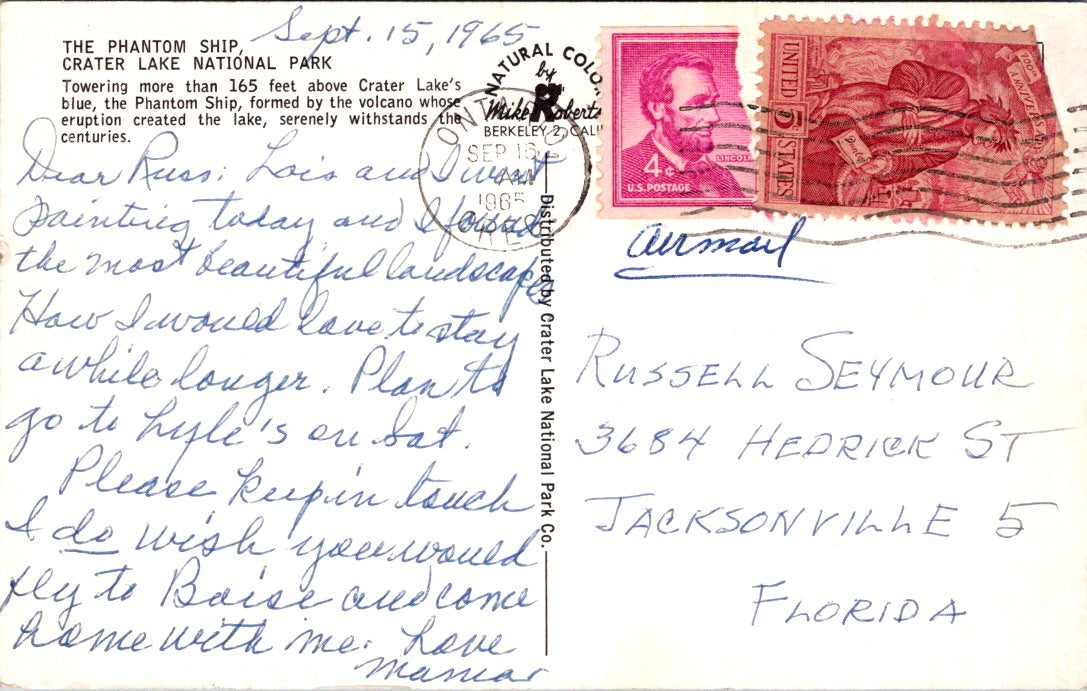 Sept. 15, 1965
THE PHANTOM SHIP,
CRATER LAKE NATIONAL PARK
Towering more than 165 feet above Crater Lake's
blue, the Phantom Ship, formed by the volcano whose
eruption created the lake, serenely withstands the
centuries.
Dear Russ: Lois and I went
painting today and I found
the most beautiful landscape
How I would love to stay
awhile longer. Plan to
go to Lyle's on Sat.
Please keep in touch
I do wish you would
fly to Boise and come
home with me. Love
NATURAL COLOR
by
Mike Roberts
BERKELEY 2, CALIF
SEP 16
AM
1965
Distributed by Crater Lake National Park Co.
4¢
LINCOLN
U.S. POSTAGE
UNITED STATES
airmail
RUSSELL SEYMOUR
3684 HEDRICK ST
JACKSONVILLE 5
FLORIDA